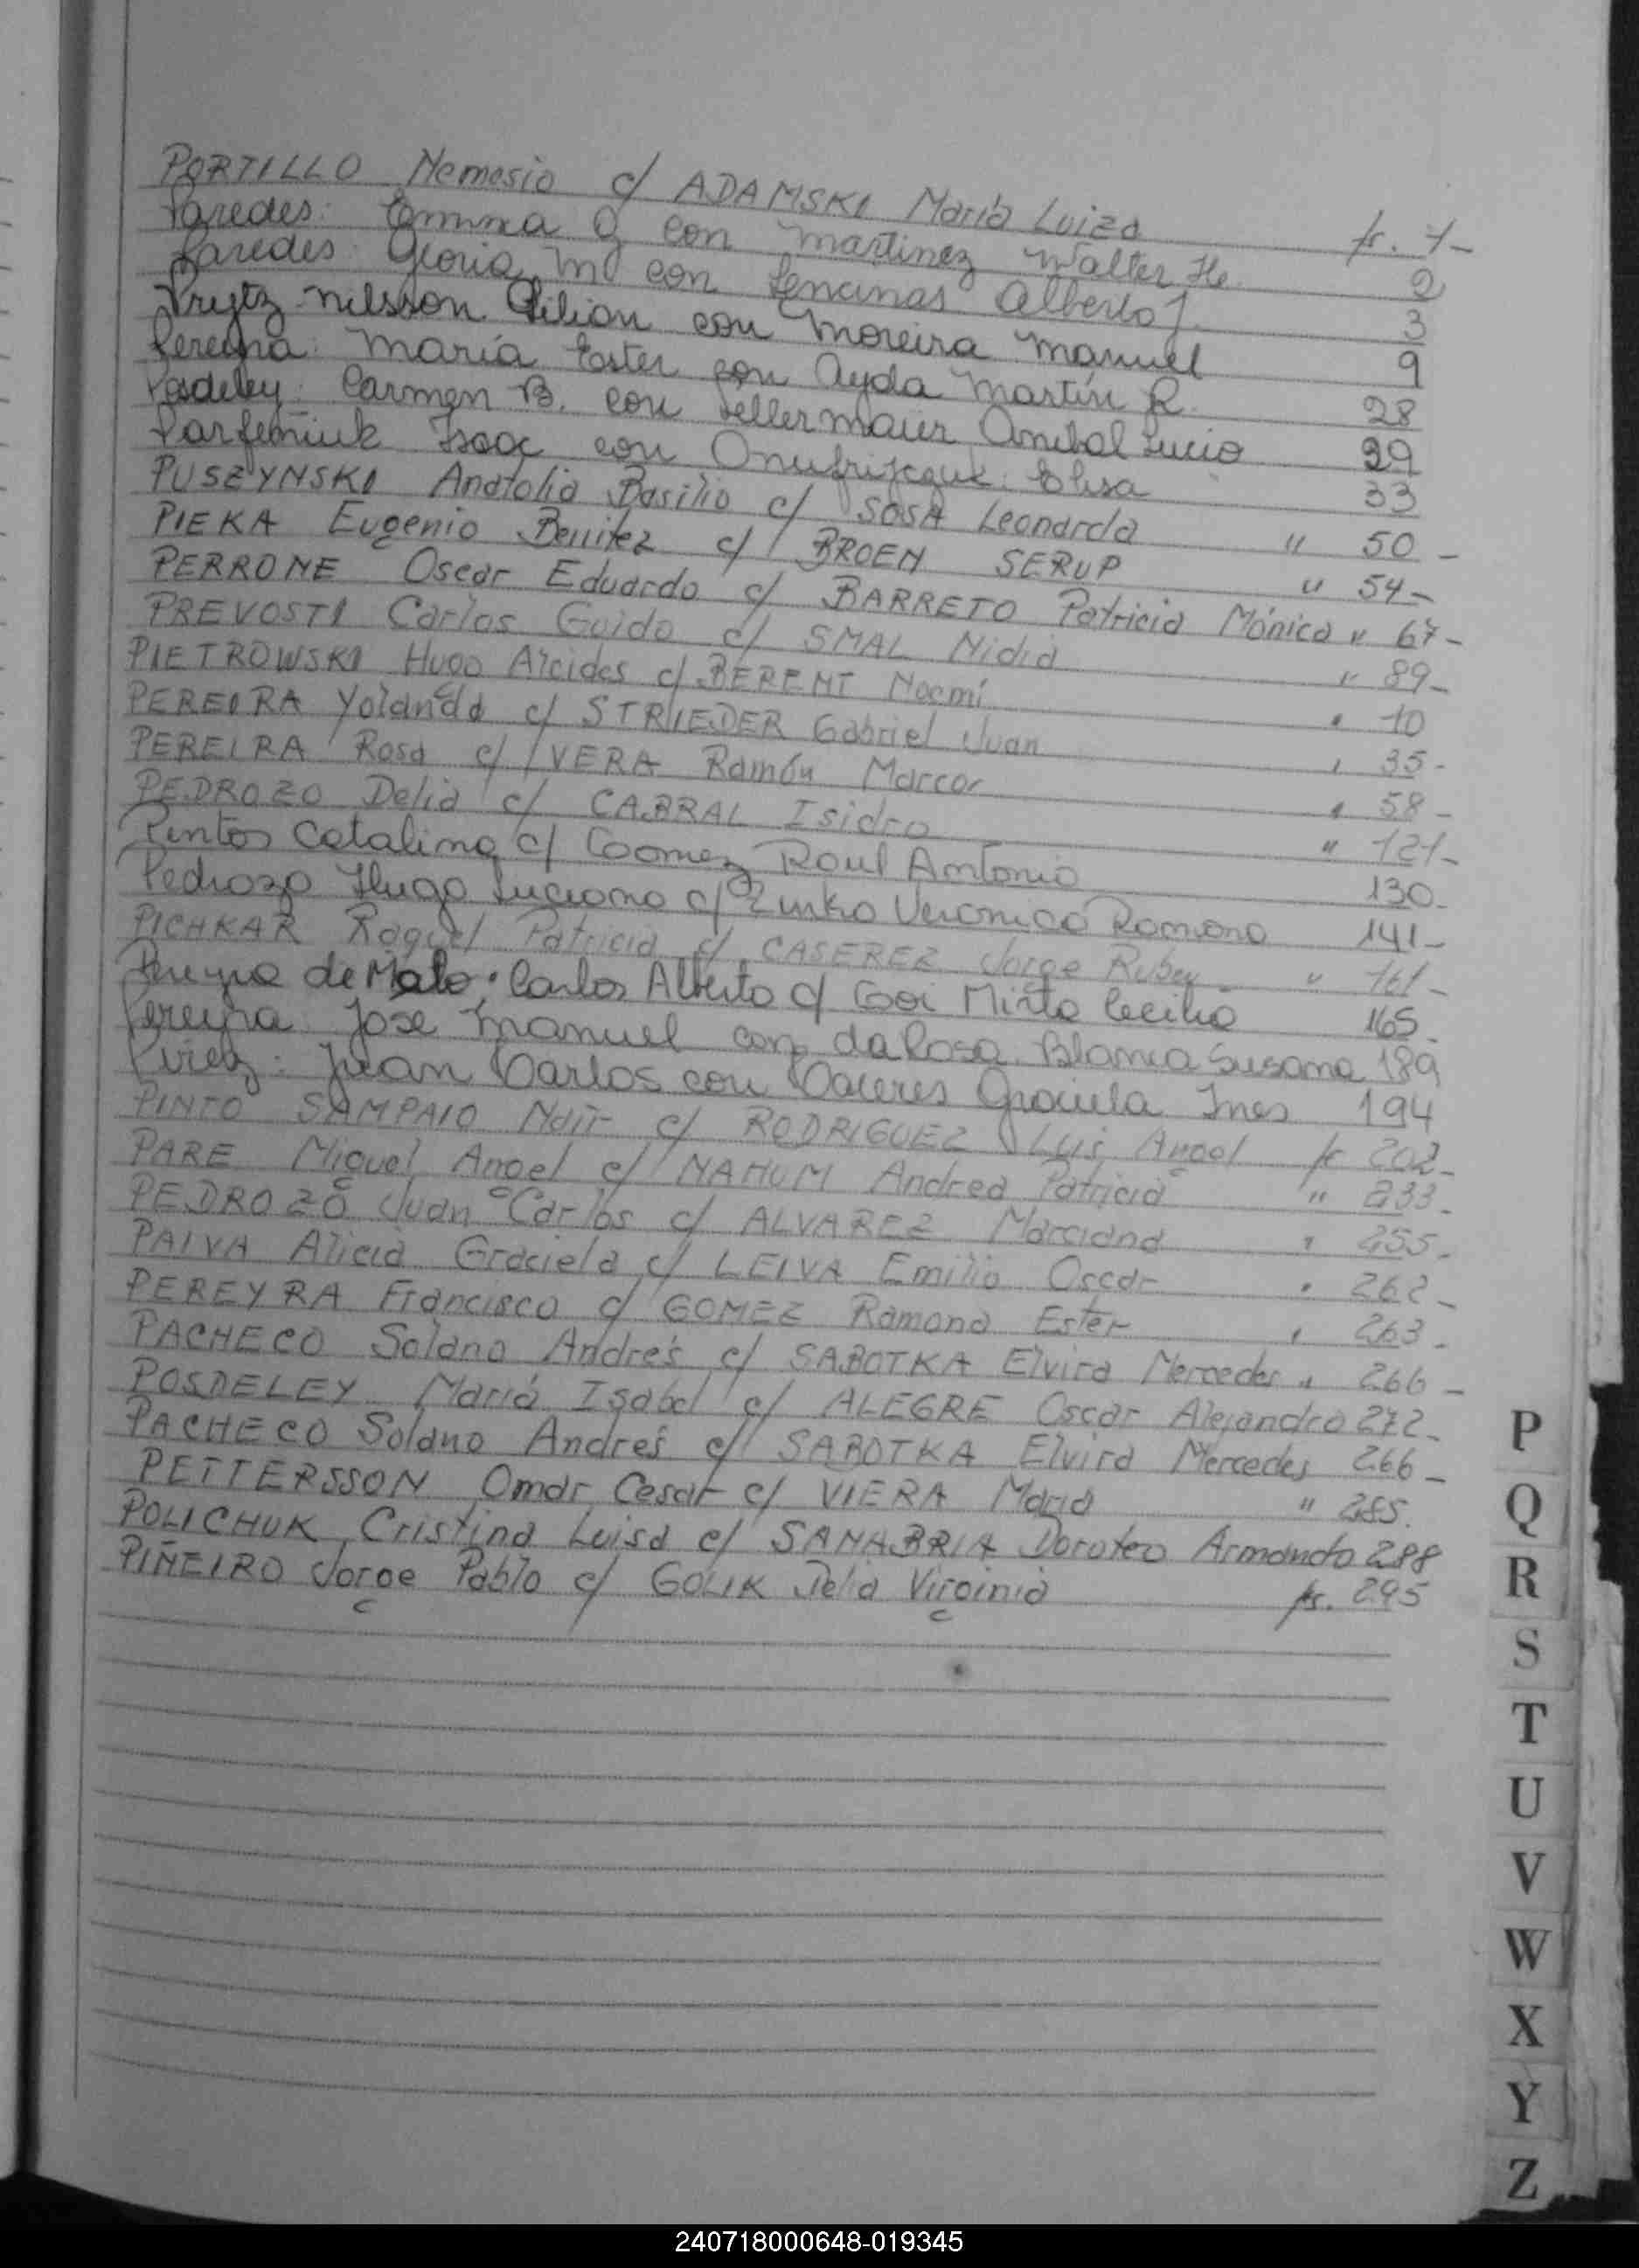 PORTILLO Nemesio c/ ADAMSKI María Luiza fs. 1-
Paredes: Emma G con Martinez Walter He. 2
Paredes: Gloria M con Lencinas Alberto J. 3
Prytz Nilsson Lilian con Moreira Manuel 9
Pereyra: María Ester con Ayda Martín R. 28
Posdeley: Carmen B. con Sellermaier Anibal Lucio 29
Parfeniuk Isaac con Onufrijczuk: Elisa 33
PUSZYNSKI Anatolio Basilio c/ SOSA Leonarda " 50 -
PIEKA Eugenio Benitez c/ BROEN SERUP " 54-
PERRONE Oscar Eduardo c/ BARRETO Patricia Mónica " 67-
PREVOSTI Carlos Guido c/ SMAL Nidia " 89-
PIETROWSKI Hugo Alcides c/ BERENT Noemí " 10
PEREIRA Yolanda c/ STRIEDER Gabriel Juan " 35-
PEREIRA Rosa c/ VERA Ramón Marcor " 58-
PEDROZO Delia c/ CABRAL Isidro " 121-
Pintos Catalina c/ Gomez Raul Antonio 130-
Pedrozo Hugo Luciano c/ Zinko Veronica Romana 141-
PICHKAR Raquel Patricia c/ CASEREZ Jorge Ruben " 161-
Pereyra de Malo: Carlos Alberto c/ Goi Mirta Cecilia 165-
Pereyra: Jose Manuel con da Rosa Blanca Susana 189
Pirez: Juan Carlos con Caceres Graciela Ines 194
PINTO SAMPAIO Nair c/ RODRIGUEZ Luis Angel fs 202-
PARE Miguel Angel c/ NAHUM Andrea Patricia " 233-
PEDROZO Juan Carlos c/ ALVAREZ Marciana " 255-
PAIVA Alicia Graciela c/ LEIVA Emilio Oscar " 262-
PEREYRA Francisco c/ GOMEZ Ramona Ester " 263-
PACHECO Solano Andrés c/ SABOTKA Elvira Mercedes " 266-
POSDELEY María Isabel c/ ALEGRE Oscar Alejandro 272-
PACHECO Solano Andrés c/ SABOTKA Elvira Mercedes 266-
PETTERSSON Omar Cesar c/ VIERA Maria " 285.
POLICHUK Cristina Luisa c/ SANABRIA Doroteo Armando 288
PIÑEIRO Jorge Pablo c/ GOLIK Delia Virginia fs. 295
P
Q
R
S
T
U
V
W
X
Y
Z
240718000648-019345